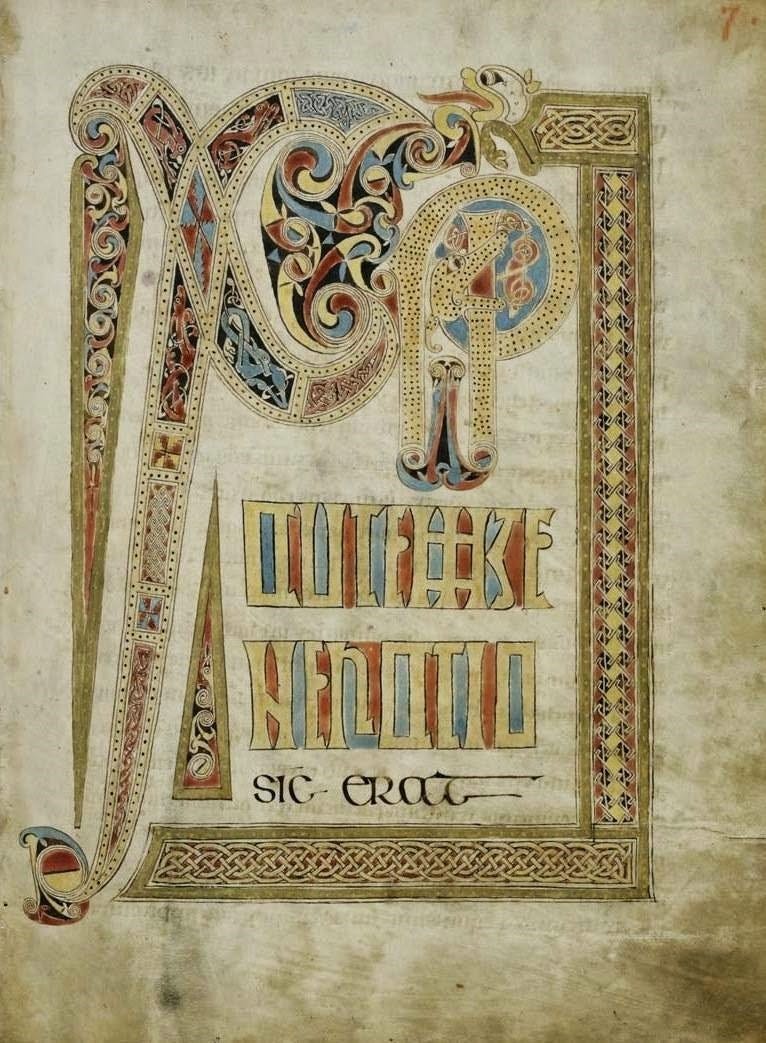 7
XPI
AUTEMGE
NERATIO
SIC ERAT